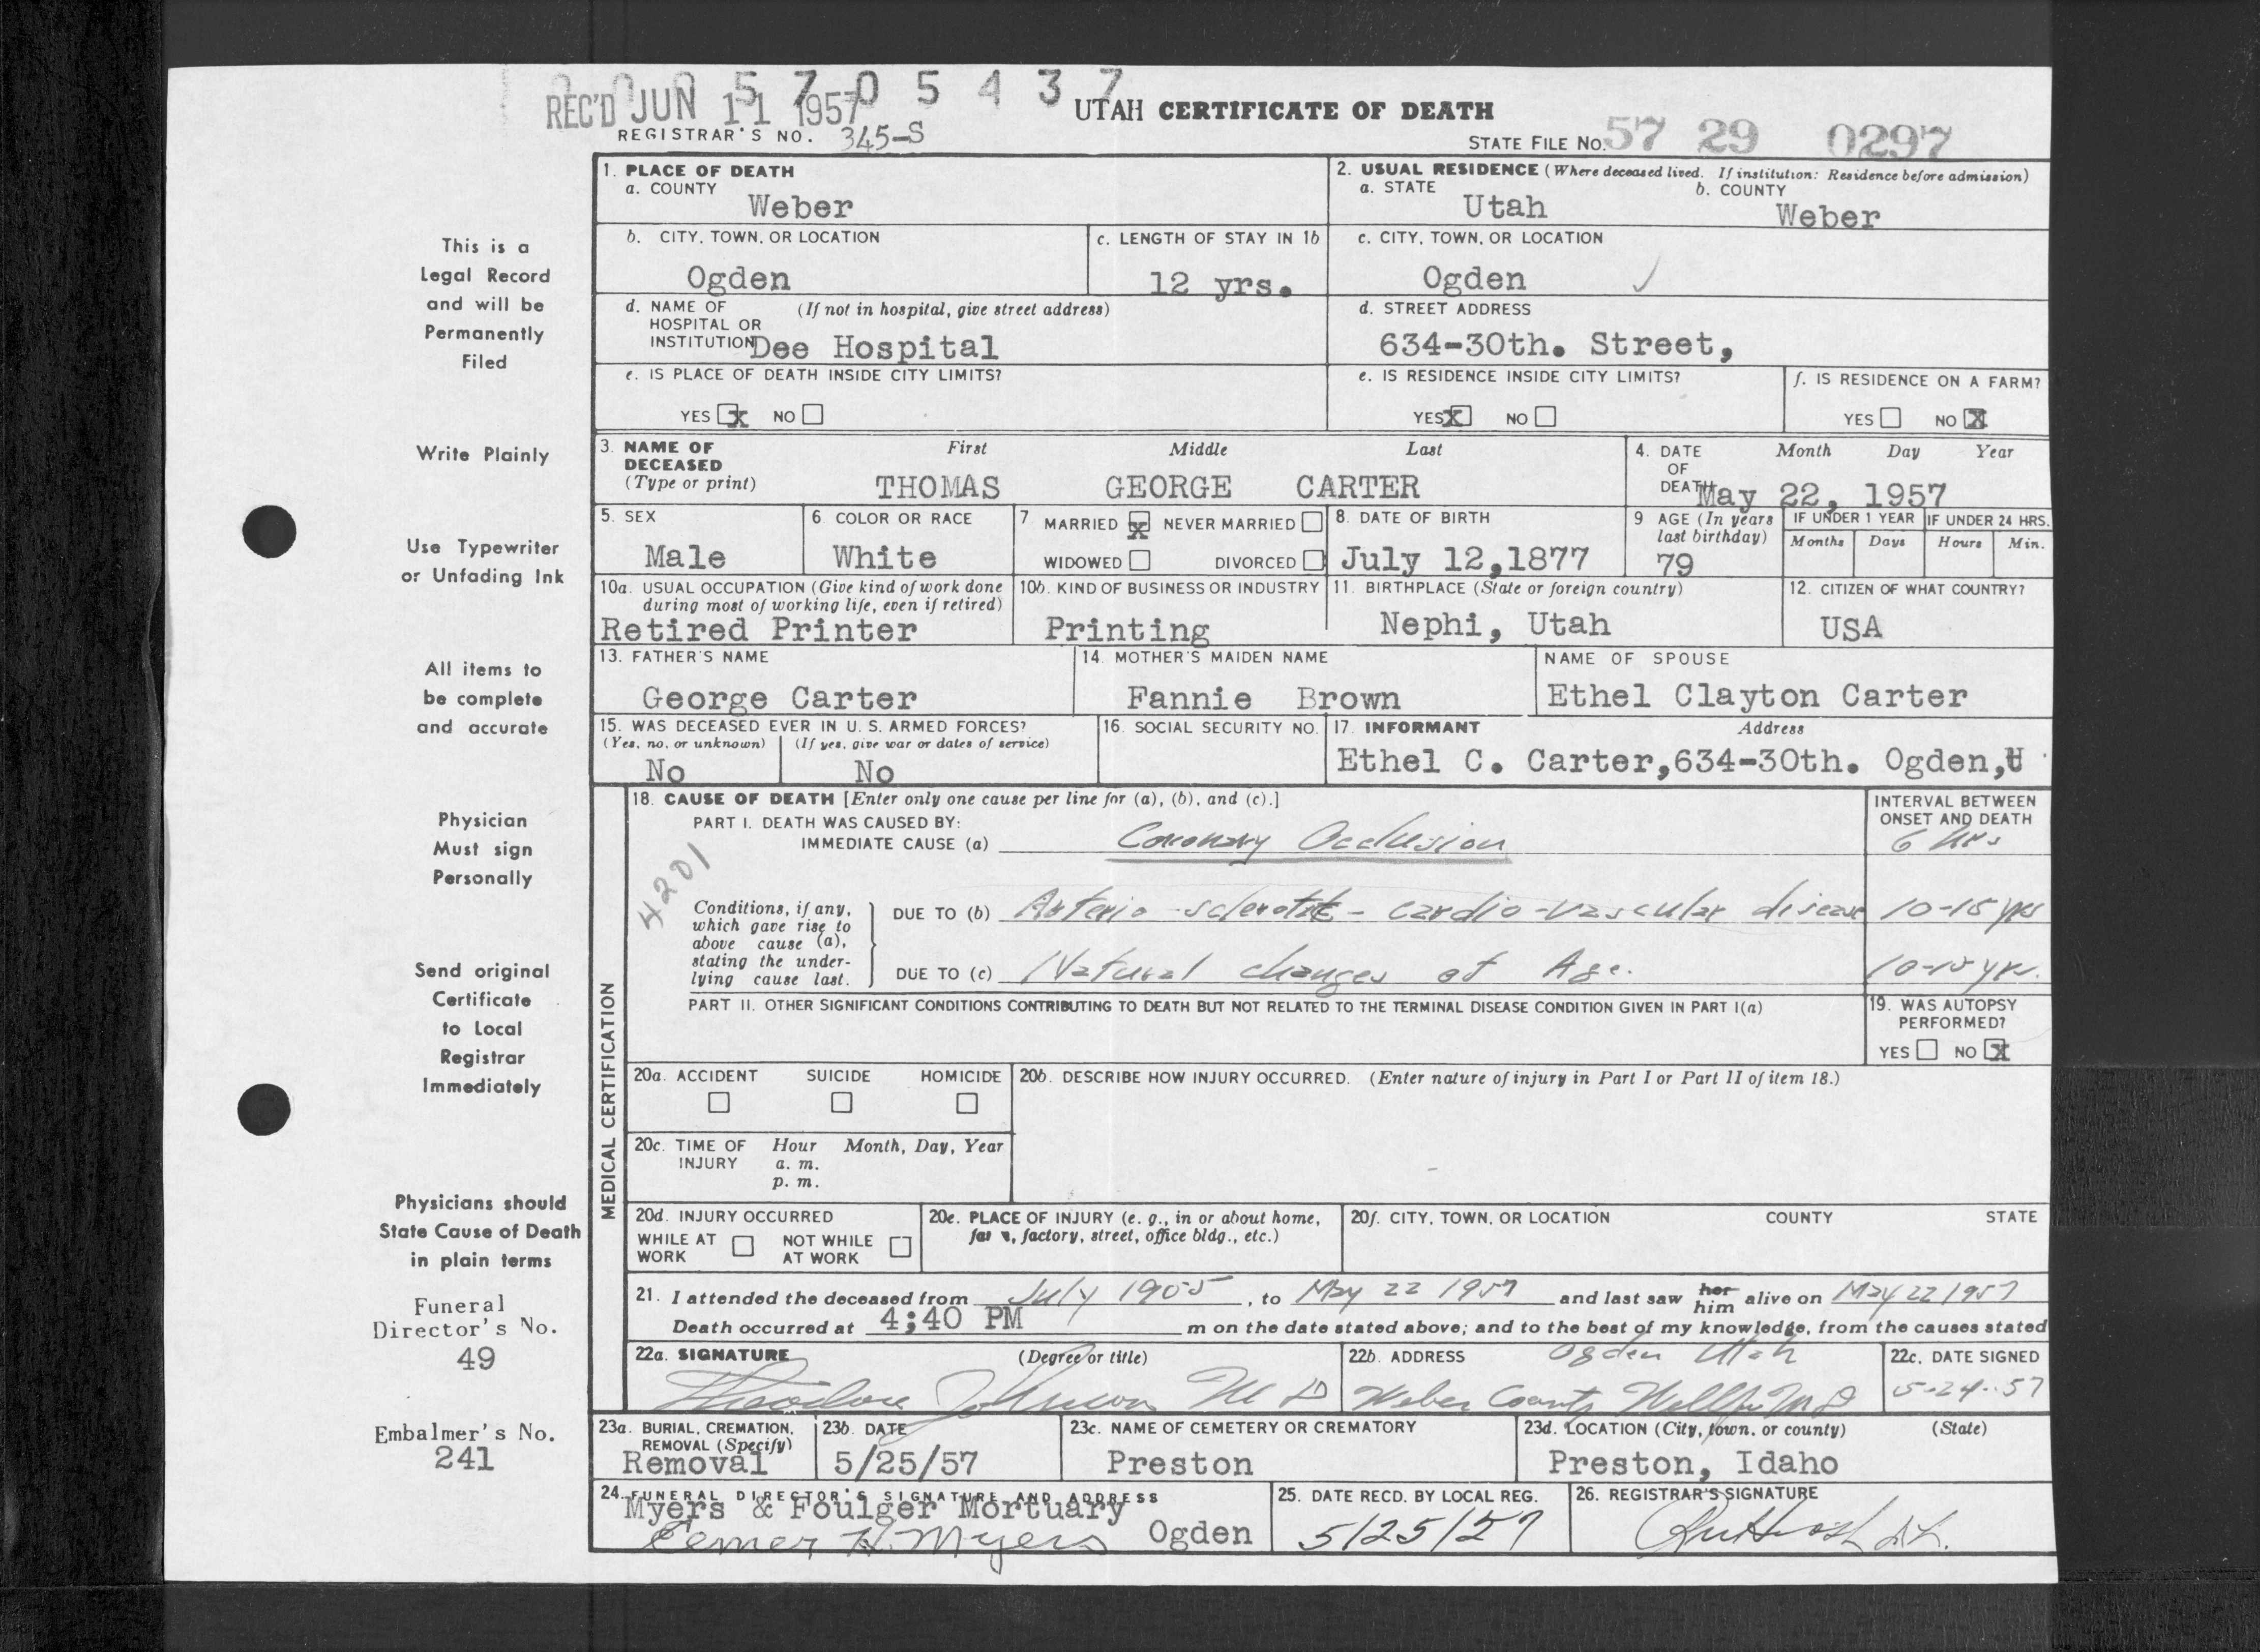 0 0 0 5 7 0 5 4 3 7
REC'D JUN 11 1957
UTAH CERTIFICATE OF DEATH
REGISTRAR'S NO. 345-S
STATE FILE NO. 57 29 0297
1. PLACE OF DEATH
a. COUNTY
Weber
2. USUAL RESIDENCE (Where deceased lived. If institution: Residence before admission)
a. STATE b. COUNTY
Utah Weber
b. CITY, TOWN, OR LOCATION
Ogden
c. LENGTH OF STAY IN 1b
12 yrs.
c. CITY, TOWN, OR LOCATION
Ogden ✓
d. NAME OF (If not in hospital, give street address)
HOSPITAL OR
INSTITUTION Dee Hospital
d. STREET ADDRESS
634-30th. Street,
e. IS PLACE OF DEATH INSIDE CITY LIMITS?
YES X NO
e. IS RESIDENCE INSIDE CITY LIMITS?
YES X NO
f. IS RESIDENCE ON A FARM?
YES NO X
3. NAME OF DECEASED (Type or print)
First Middle Last
THOMAS GEORGE CARTER
4. DATE OF DEATH Month Day Year
May 22, 1957
5. SEX
Male
6. COLOR OR RACE
White
7 MARRIED X NEVER MARRIED
WIDOWED DIVORCED
8. DATE OF BIRTH
July 12,1877
9 AGE (In years last birthday)
79
IF UNDER 1 YEAR IF UNDER 24 HRS.
Months Days Hours Min.
10a. USUAL OCCUPATION (Give kind of work done during most of working life, even if retired)
Retired Printer
10b. KIND OF BUSINESS OR INDUSTRY
Printing
11. BIRTHPLACE (State or foreign country)
Nephi, Utah
12. CITIZEN OF WHAT COUNTRY?
USA
13. FATHER'S NAME
George Carter
14. MOTHER'S MAIDEN NAME
Fannie Brown
NAME OF SPOUSE
Ethel Clayton Carter
15. WAS DECEASED EVER IN U. S. ARMED FORCES?
(Yes, no, or unknown) (If yes, give war or dates of service)
No No
16. SOCIAL SECURITY NO.
17. INFORMANT Address
Ethel C. Carter,634-30th. Ogden,U
MEDICAL CERTIFICATION
18. CAUSE OF DEATH [Enter only one cause per line for (a), (b), and (c).]
INTERVAL BETWEEN
ONSET AND DEATH
PART I. DEATH WAS CAUSED BY:
IMMEDIATE CAUSE (a) Coronary Occlusion 6 hrs
4201
Conditions, if any,
which gave rise to
above cause (a),
stating the under-
lying cause last.
DUE TO (b) Arterio-sclerotic - cardio-vascular disease 10-15 yrs
DUE TO (c) Natural changes of Age. 10-15 yrs.
PART II. OTHER SIGNIFICANT CONDITIONS CONTRIBUTING TO DEATH BUT NOT RELATED TO THE TERMINAL DISEASE CONDITION GIVEN IN PART I(a)
19. WAS AUTOPSY
PERFORMED?
YES NO X
20a. ACCIDENT SUICIDE HOMICIDE
20b. DESCRIBE HOW INJURY OCCURRED. (Enter nature of injury in Part I or Part II of item 18.)
20c. TIME OF INJURY Hour Month, Day, Year
a. m.
p. m.
20d. INJURY OCCURRED
WHILE AT WORK NOT WHILE AT WORK
20e. PLACE OF INJURY (e. g., in or about home,
farm, factory, street, office bldg., etc.)
20f. CITY, TOWN, OR LOCATION COUNTY STATE
21. I attended the deceased from July 1955, to May 22 1957 and last saw her him alive on May 22 1957
Death occurred at 4;40 PM m on the date stated above; and to the best of my knowledge, from the causes stated
22a. SIGNATURE (Degree or title)
Theodore Johnson M D
22b. ADDRESS Ogden Utah
Weber County
22c. DATE SIGNED
5-24-57
23a. BURIAL, CREMATION,
REMOVAL (Specify)
Removal
23b. DATE
5/25/57
23c. NAME OF CEMETERY OR CREMATORY
Preston
23d. LOCATION (City, town, or county) (State)
Preston, Idaho
24. FUNERAL DIRECTOR'S SIGNATURE AND ADDRESS
Myers & Foulger Mortuary
Elmer H. Myers Ogden
25. DATE RECD. BY LOCAL REG.
5/25/57
26. REGISTRAR'S SIGNATURE
This is a
Legal Record
and will be
Permanently
Filed
Write Plainly
Use Typewriter
or Unfading Ink
All items to
be complete
and accurate
Physician
Must sign
Personally
Send original
Certificate
to Local
Registrar
Immediately
Physicians should
State Cause of Death
in plain terms
Funeral
Director's No.
49
Embalmer's No.
241